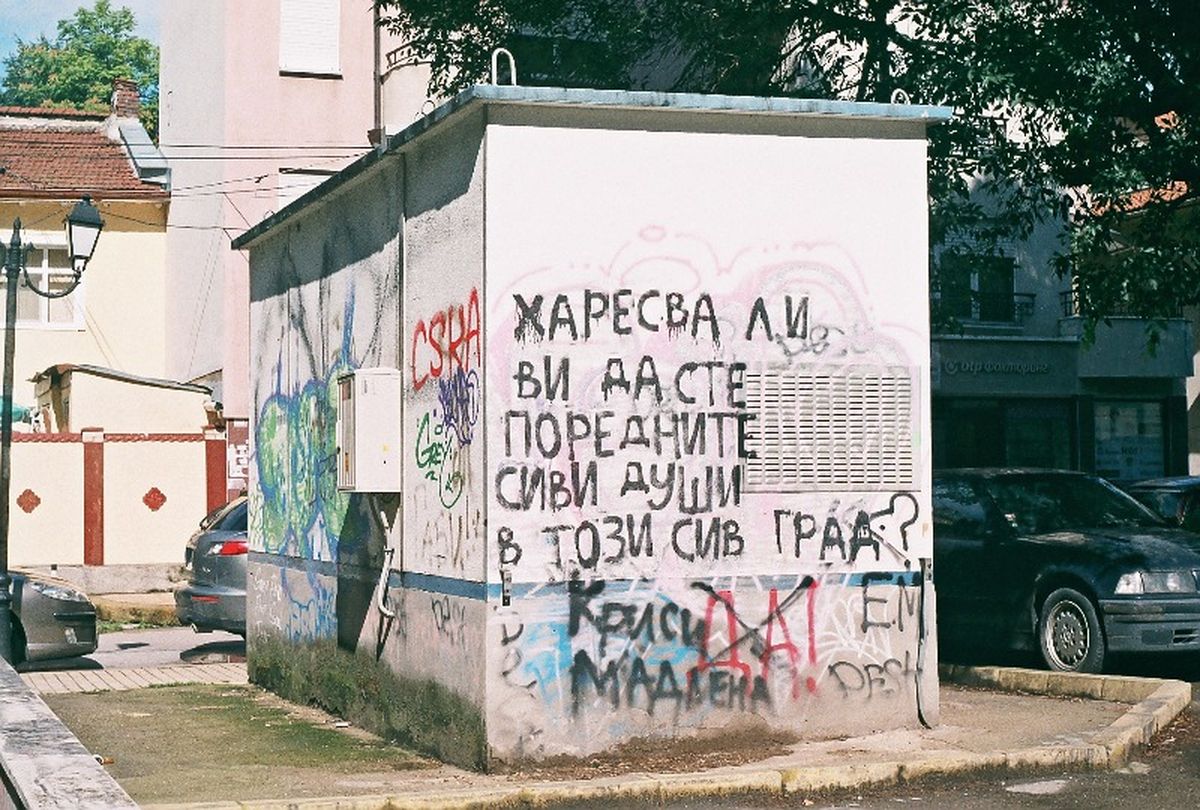 CSKA
GREY
ХАРЕСВА ЛИ
ВИ ДА СТЕ
ПОРЕДНИТЕ
СИВИ ДУШИ
В ТОЗИ СИВ ГРАД?
ДА!
Криси
МАДЛЕНА
ЕМ
DESH
otp Факторинг